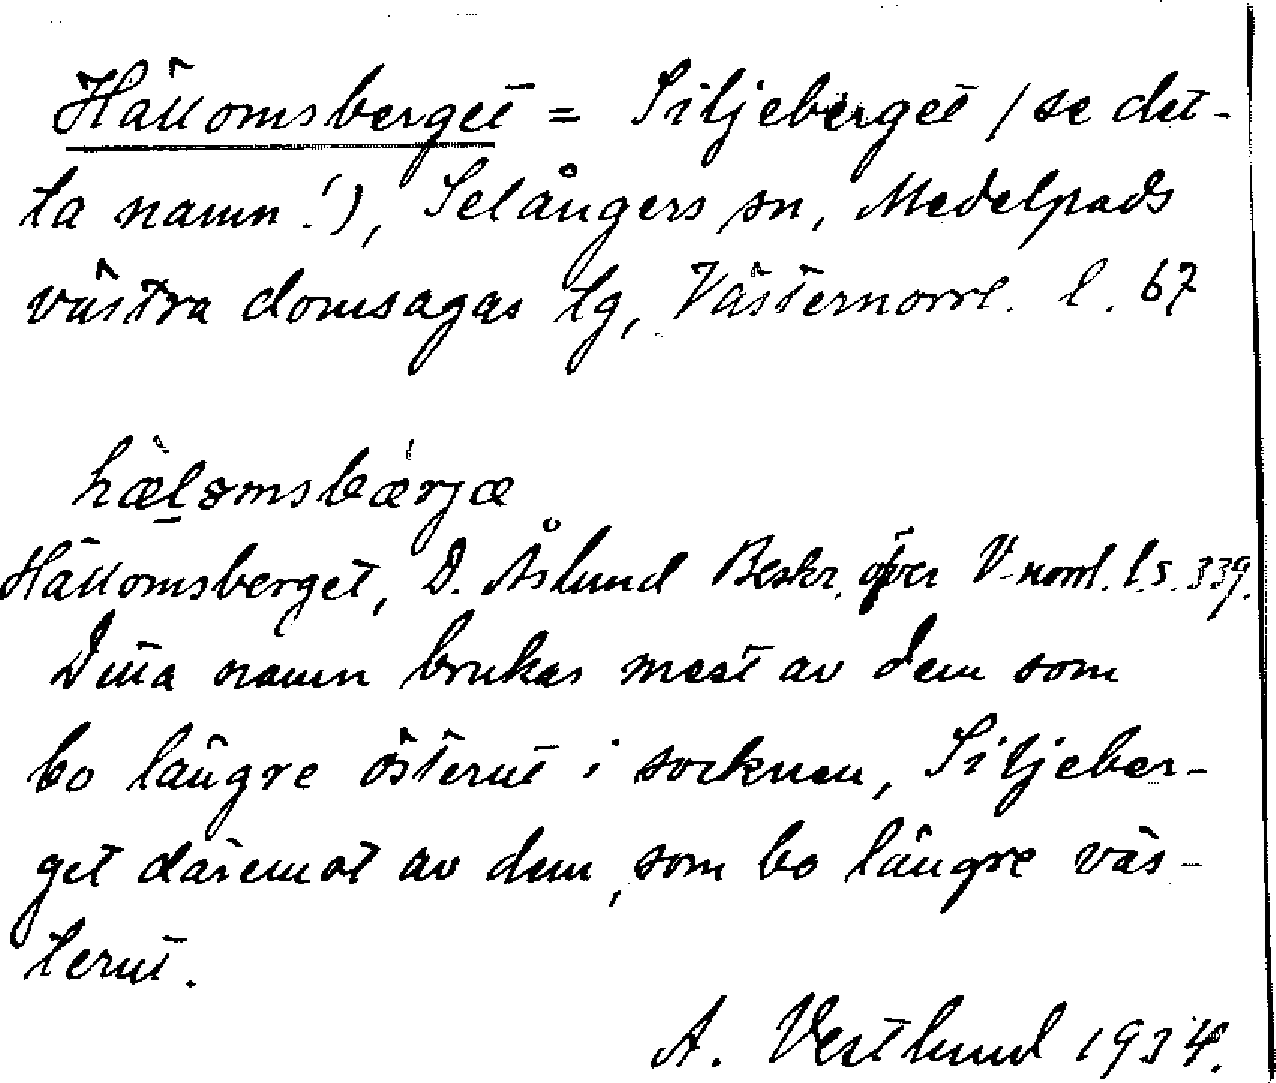 Hällomsberget = Siljeberget (se det-
ta namn!), Selångers sn, Medelpads
västra domsagas tg, Västernorrl. l. 67
hælomsbærjæ
Hällomsberget, D. Åslund Beskr. över V-norrl. l. s. 339.
Detta namn brukas mest av dem som
bo längre österut i socknen, Siljeber-
get däremot av dem, som bo längre väs-
terut.
A. Vestlund 1934.